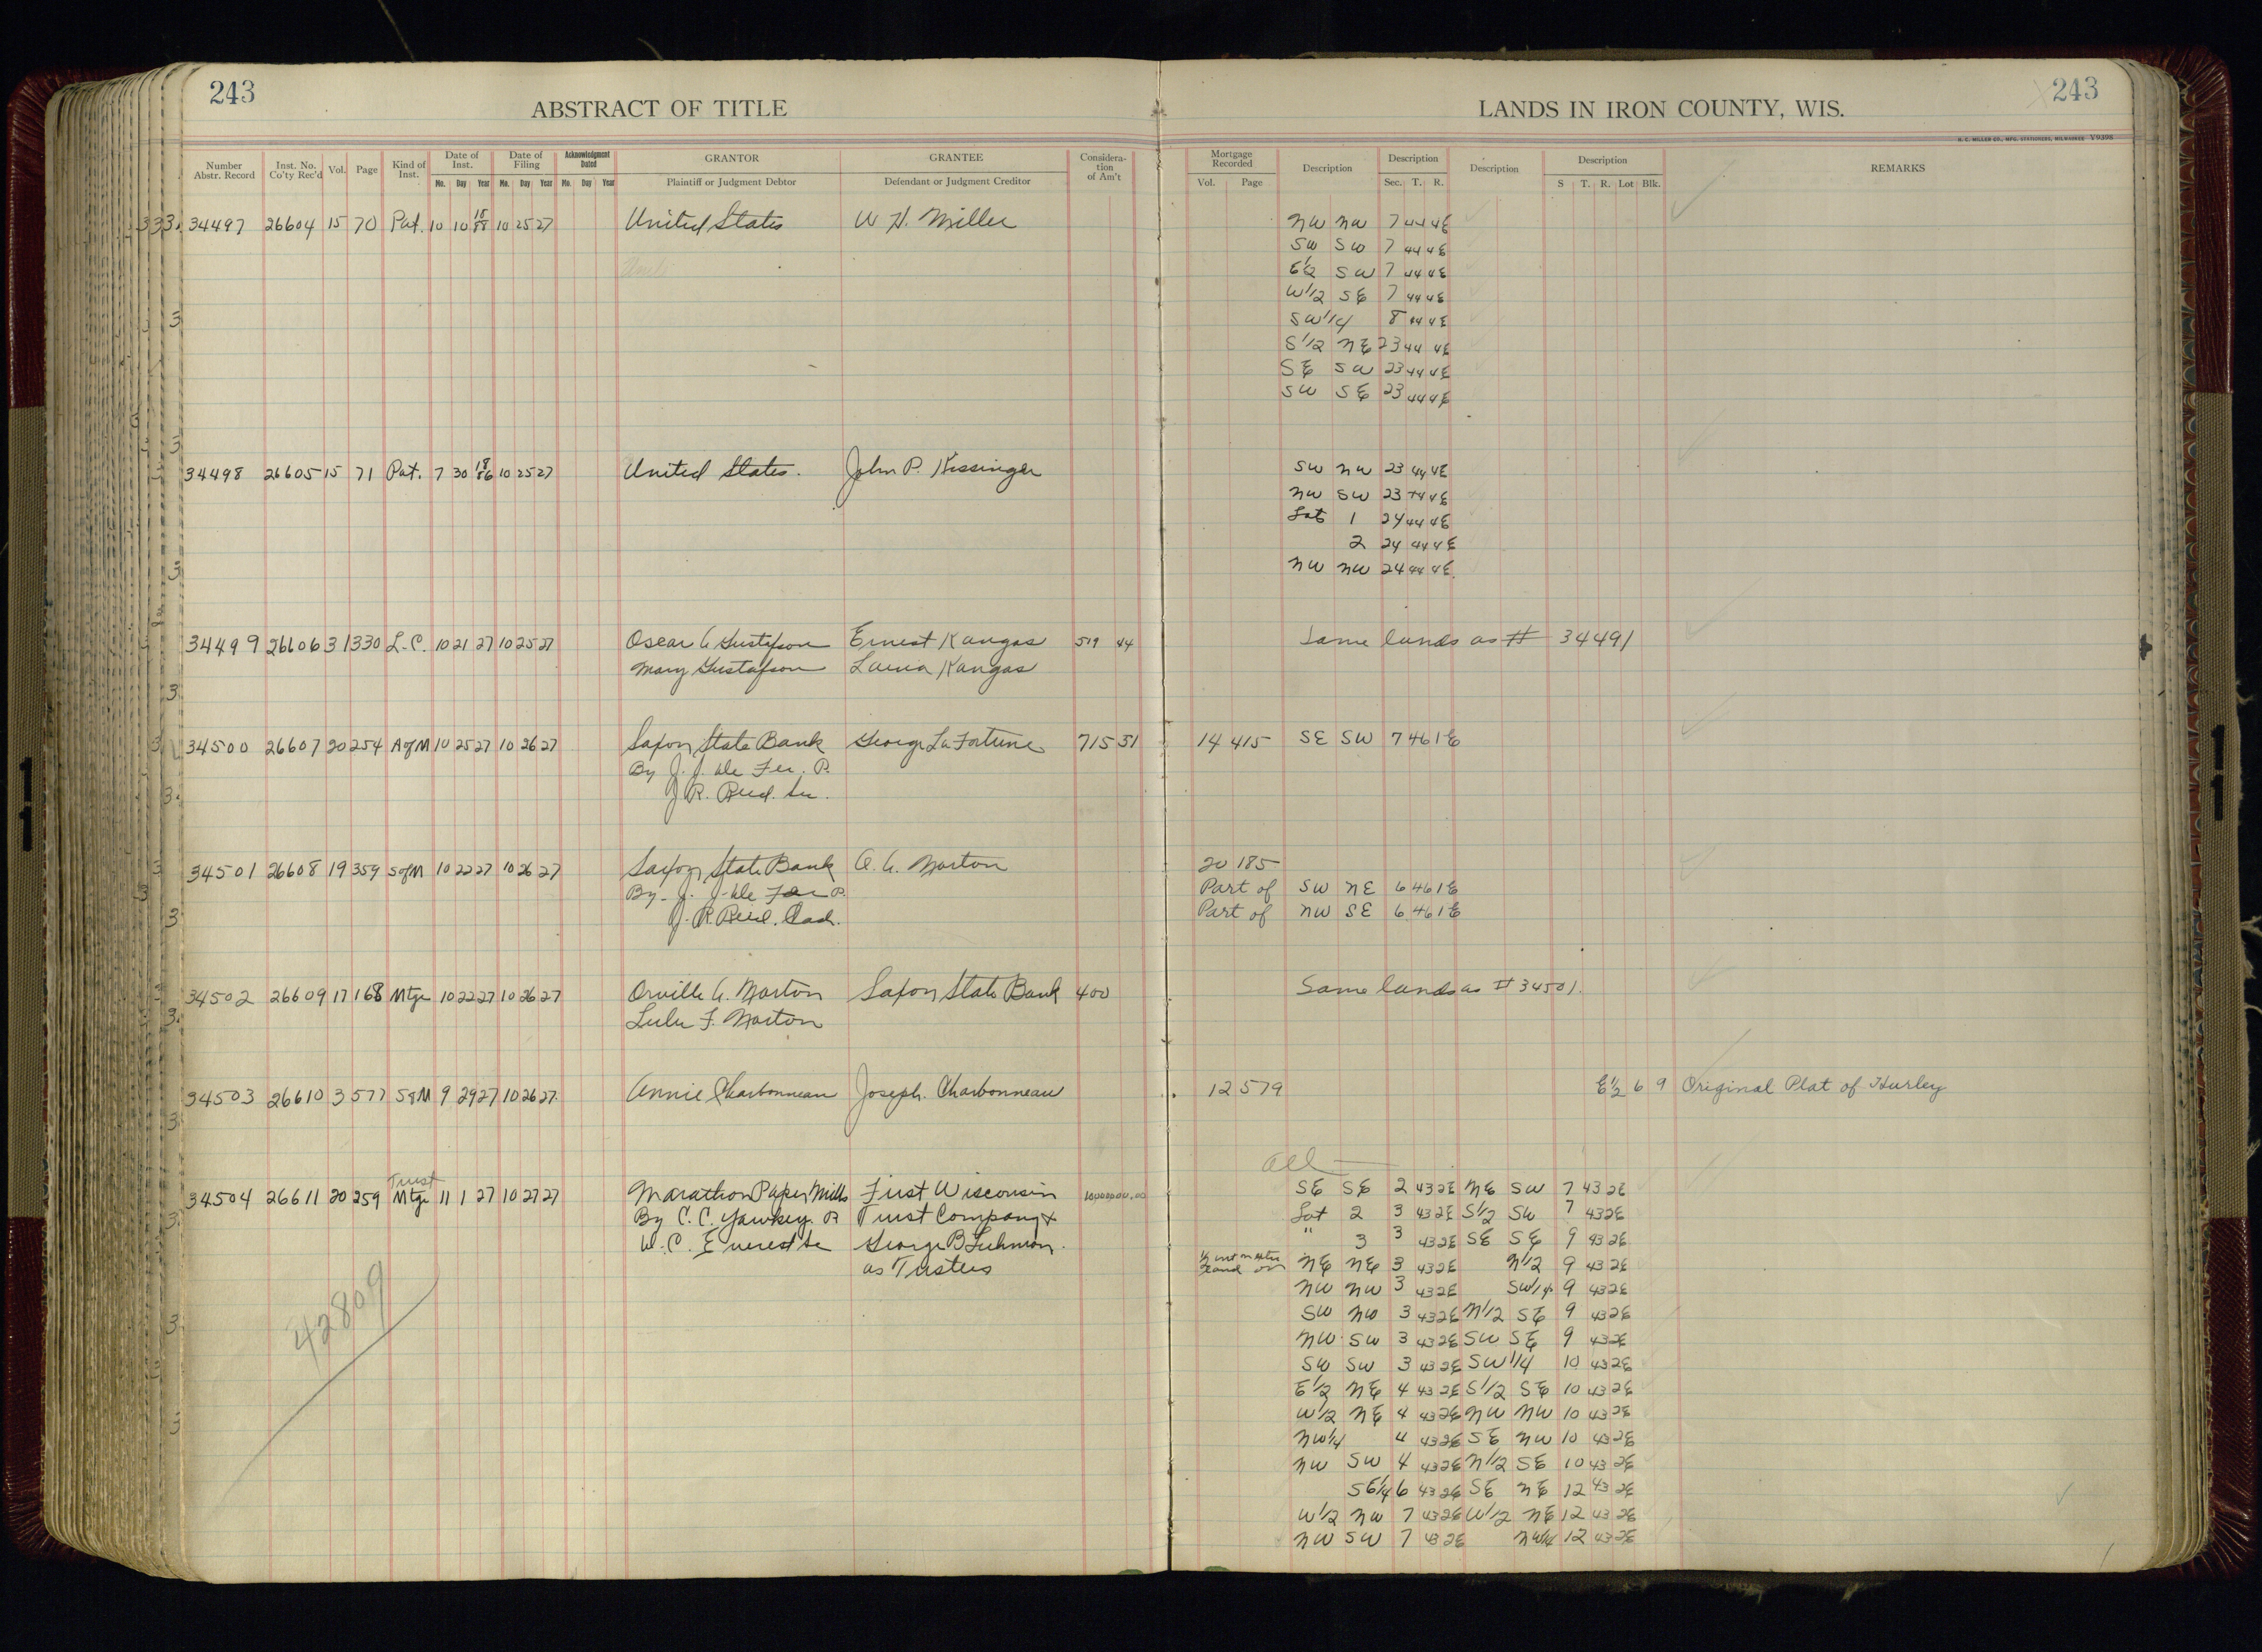 243
ABSTRACT OF TITLE
LANDS IN IRON COUNTY, WIS.
243
H. C. MILLER CO., MFG. STATIONERS, MILWAUKEE V9398
Number Abstr. Record Inst. No. Co'ty Rec'd Vol. Page Kind of Inst. Date of Inst. Mo. Day Year Date of Filing Mo. Day Year Acknowledgment Dated Mo. Day Year GRANTOR Plaintiff or Judgment Debtor GRANTEE Defendant or Judgment Creditor Considera-tion of Am't Mortgage Recorded Vol. Page Description Description Sec. T. R. Description Description S T. R. Lot Blk. REMARKS
34497 26604 15 70 Pat. 10 10 18 88 10 25 27 United States W H. Miller NW NW 7 44 4E
SW SW 7 44 4E
E1/2 SW 7 44 4E
W1/2 SE 7 44 4E
SW1/4 8 44 4E
S1/2 NE 23 44 4E
SE SW 23 44 4E
SW SE 23 44 4E
34498 26605 15 71 Pat. 7 30 18 86 10 25 27 United States. John P. Kissinger SW NW 23 44 4E
NW SW 23 44 4E
Lot 1 24 44 4E
2 24 44 4E
NW NW 24 44 4E
34499 26606 31 330 L.C. 10 21 27 10 25 27 Oscar A Gustafson Ernest Kangas 519 44 Same lands as # 34491
Mary Gustafson Laina Kangas
34500 26607 20 254 A of M 10 25 27 10 26 27 Saxon State Bank George La Fortune 715 31 14 415 SE SW 7 46 1E
By J. J. De Fer. P.
J R. Reid.
34501 26608 19 359 S of M 10 22 27 10 26 27 Saxon State Bank O. A. Norton 20 185
By J. J. De Fer P. Part of SW NE 6 46 1E
J. R. Reid. Cash. Part of NW SE 6 46 1E
34502 26609 17 168 Mtge 10 22 27 10 26 27 Orville A. Norton Saxon State Bank 400 Same lands as # 34501.
Lulu F. Norton
34503 26610 3 577 S of M 9 29 27 10 26 27. Annie Charbonneau Joseph. Charbonneau 12 579 E1/2 6 9 Original Plat of Hurley
All
Trust
34504 26611 20 259 Mtge 11 1 27 10 27 27 Marathon Paper Mills First Wisconsin SE SE 2 43 2E NE SW 7 43 2E
By C. C. Yawkey. P Trust Company & Lot 2 3 43 2E S1/2 SW 7 43 2E
W. C. Everest Se George B Luhman. " 3 3 43 2E SE SE 9 43 2E
as Trustees NE NE 3 43 2E N1/2 9 43 2E
NW NW 3 43 2E SW1/4 9 43 2E
42809 SW NW 3 43 2E N1/2 SE 9 43 2E
NW SW 3 43 2E SW SE 9 43 2E
SW SW 3 43 2E SW1/4 10 43 2E
E1/2 NE 4 43 2E S1/2 SE 10 43 2E
W1/2 NE 4 43 2E NW NW 10 43 2E
NW1/4 4 43 2E SE NW 10 43 2E
NW SW 4 43 2E N1/2 SE 10 43 2E
SE1/4 6 43 2E SE NE 12 43 2E
W1/2 NW 7 43 2E W1/2 NE 12 43 2E
NW SW 7 43 2E NW1/4 12 43 2E